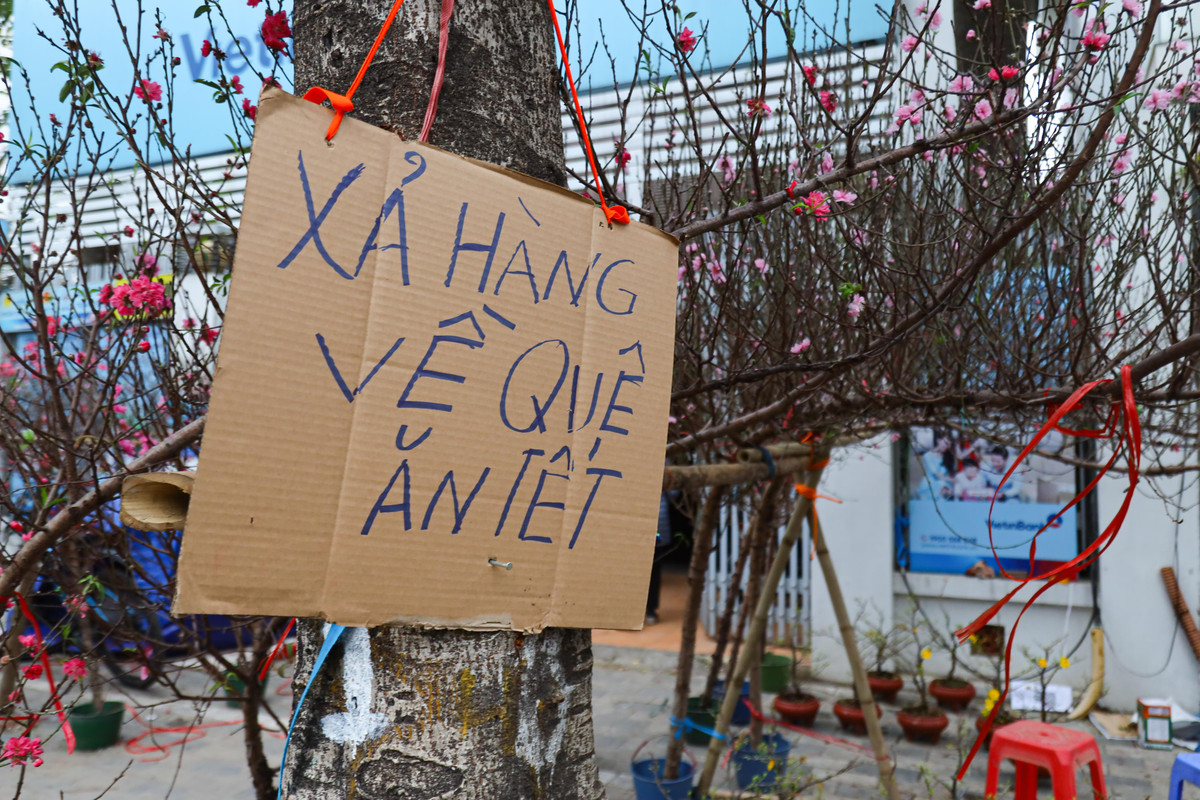 Viet
XẢ HÀNG
VỀ QUÊ
ĂN TẾT
VietinBank